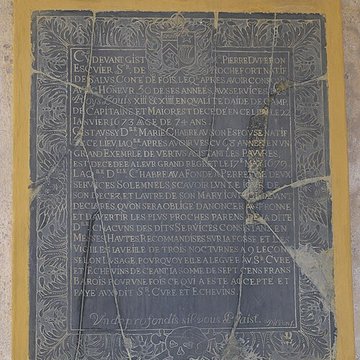 CY DEVANT GIST PIERRE DVPERON
ESCVIER Sʳ. DE ROCHEFORT NATIF
DE SALVS CONTE DE FOIS, LEQᴸ APRES AVOIR CONS
AVEC HONEVR 50 DE SES ANNEES AVX SERVICES
Roys Louis XIII & XIIII EN QVALITE D'AIDE DE CAMP
DE CAPITAINE ET MAIOR EST DECEDE EN CE LIEV LE 22
IANVIER 1673 AGE DE 74 ANS.
GIST AVSSY Dˡˡᵉ MARIE CHABREAV SON ESPOVSE NATIF
DE CE LIEV LAQˡˡᵉ APRES AVOIR VESCV 8 ANNEES EN VN
GRAND EXEMPLE DE VERTVS ASSISTANT LES PAVVRES,
EST DECEDEE A LEVR GRAND REGRET LE 17 MAY 1675
LAQˡˡᵉ Dˡˡᵉ CHABREAV A FONDE A PERPETVITE DEVX
SERVICES SOLEMNELS SCAVOIR L'VN LE IOVR
DE SON DECEZ ET L'AVTRE DE SON MARY IOVR CY DEVANT
DECLARES QV'ON SERA OBLIGE D'ANONCER AV PRONE
ET D'AVERTIR LES PLVS PROCHES PARENS DE LA DITE
Dˡˡᵉ CHACVNS DES DITS SERVICES CONSISTANT
MESSES HAVTES RECOMANDISES SVR LA FOSSE ET LES
VIGILES LA VEILLE DE TROIS NOCTVRNES A 9 LECONS
SELON L'VSAGE POVRQVOY ELLE A LEGVE AV Sʳ CVRE
ET ECHEVINS DE CEANT LA SOMME DE SEPT CENS FRANS
BAROIS POVR VNE FOIS CE QVI A ESTE ACCEPTE ET
PAYE AVX DIT Sʳ CVRE ET ECHEVINS
Un de profondis s'il vous plaist.